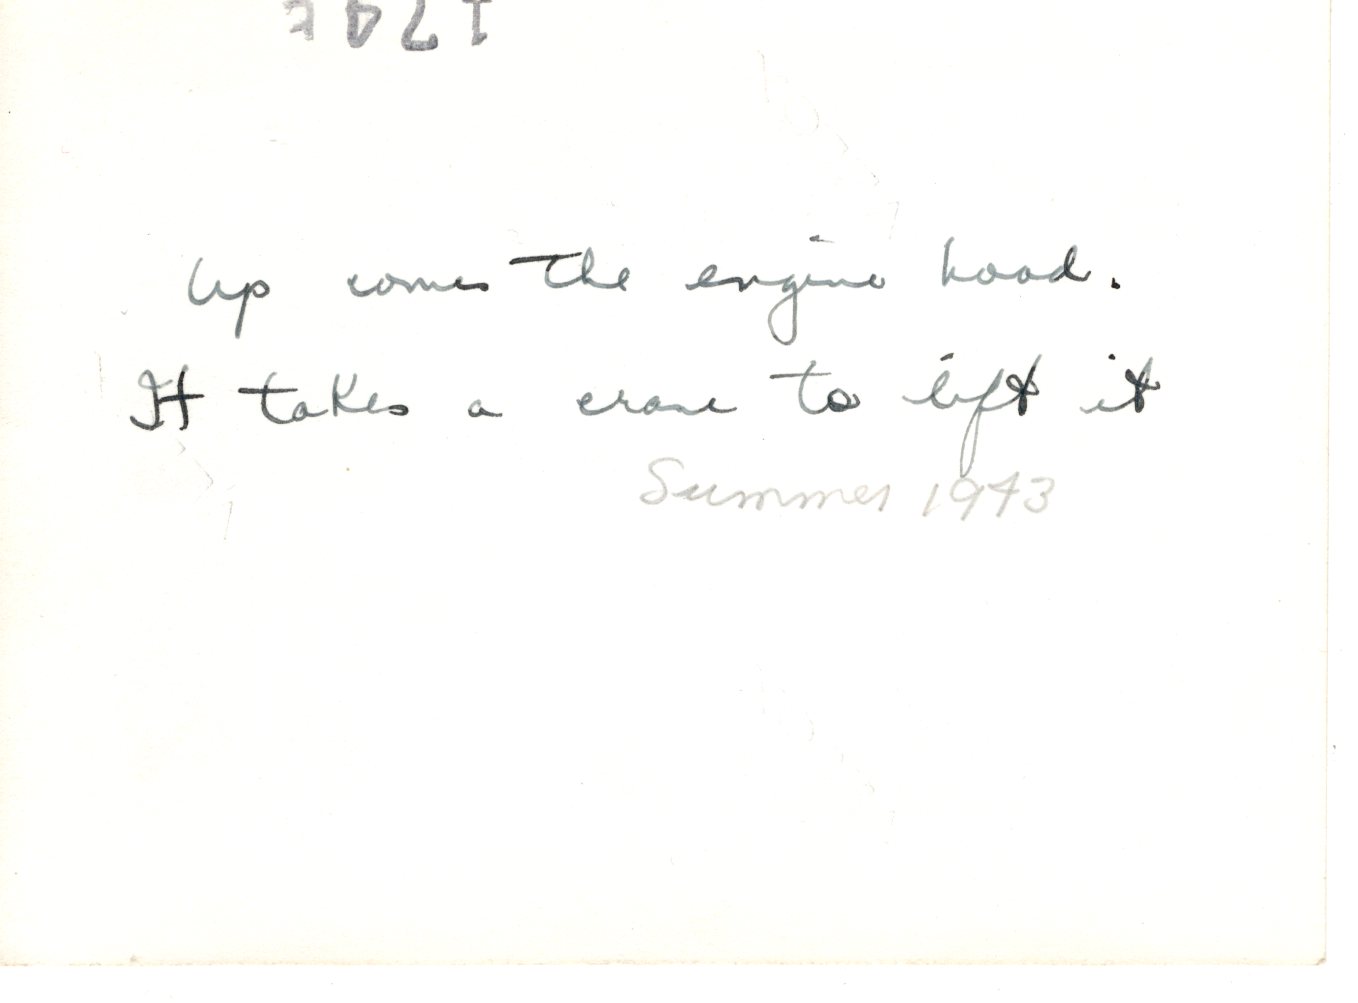 Up comes the engine hood.
It takes a crane to lift it
Summer 1943